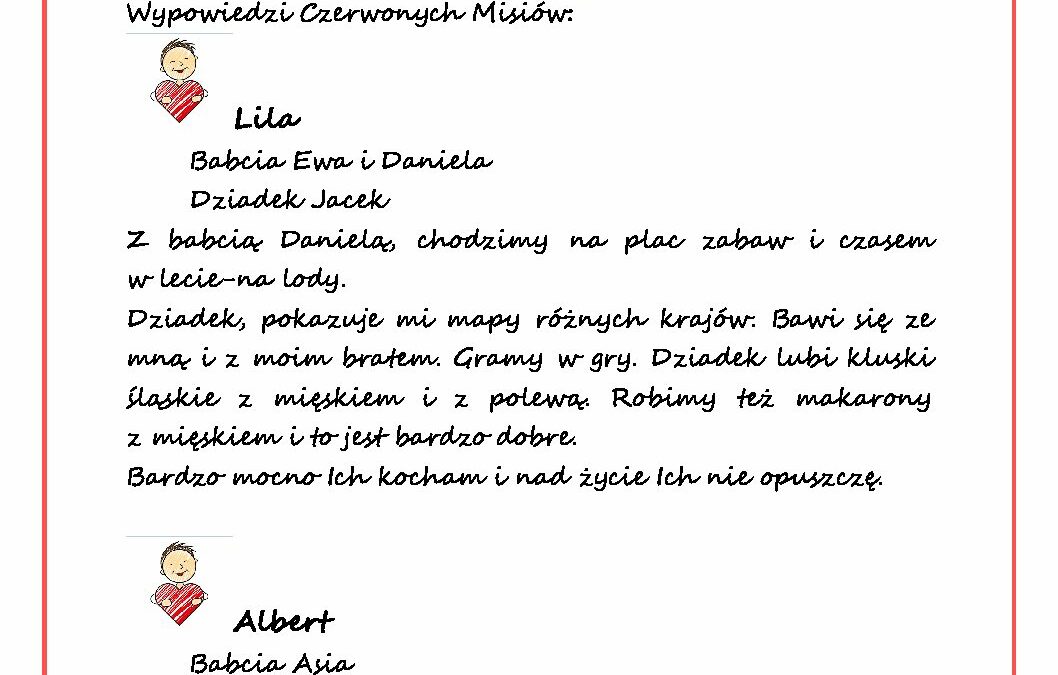 Wypowiedzi Czerwonych Misiów:
Lila
Babcia Ewa i Daniela
Dziadek Jacek
Z babcią Danielą, chodzimy na plac zabaw i czasem
w lecie-na lody.
Dziadek, pokazuje mi mapy różnych krajów. Bawi się ze
mną i z moim bratem. Gramy w gry. Dziadek lubi kluski
śląskie z mięskiem i z polewą. Robimy też makarony
z mięskiem i to jest bardzo dobre.
Bardzo mocno Ich kocham i nad życie Ich nie opuszczę.
Albert
Babcia Asia